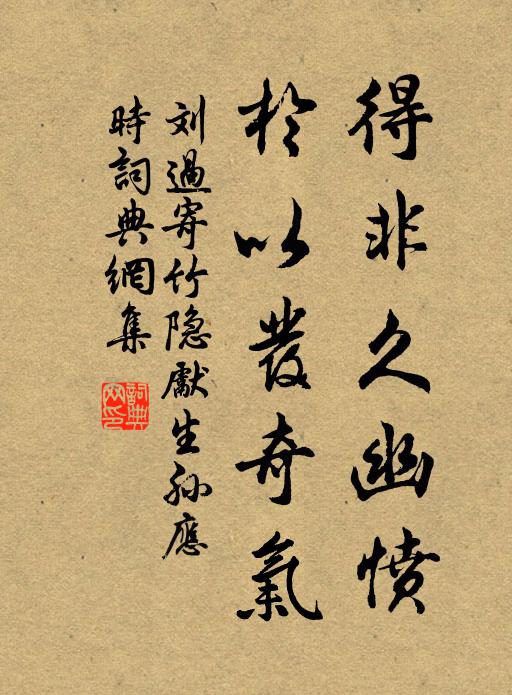 得非久幽憤
於以發奇氣
刘過寄竹隐獻生孙應
時詞典網集
詞典
网印